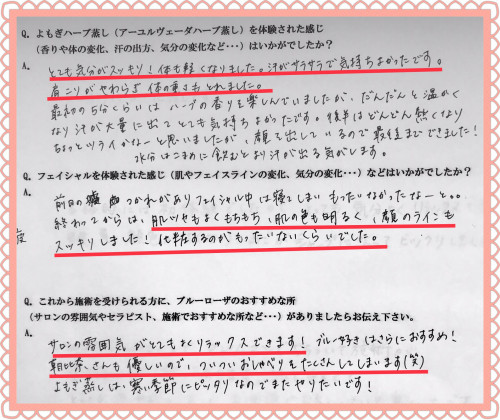 Q. よもぎハーブ蒸し（アーユルヴェーダハーブ蒸し）を体験された感じ
（香りや体の変化、汗の出方、気分の変化など・・・）はいかがでしたか？
A. とても気分がスッキリ！体も軽くなりました。汗がサラサラで気持ちよかったです。
肩こりがやわらぎ 体の重さもとれました。
最初の5分くらいは ハーブの香りを楽しんでいましたが、だんだんと温かく
なり汗が大量に出てとても気持ちよかったです。後半はどんどん熱くなり
ちょっとツライかなーと思いましたが、顔を出しているので最後までできました！
水分はこまめに飲むとより汗が出る気がします。
Q. フェイシャルを体験された感じ（肌やフェイスラインの変化、気分の変化）などはいかがでしたか？
A. 前日の つかれがありフェイシャル中は寝てしまい もったいなかったなーと。。
終わってからは、肌ツヤもよくもちもち、肌の色も明るく、顔のラインも
スッキリしました！化粧するのがもったいないくらいでした。
Q. これから施術を受けられる方に、ブルーローザのおすすめな所
（サロンの雰囲気やセラピスト、施術でおすすめな所など・・・）がありましたらお伝え下さい。
A. サロンの雰囲気がとてもよくリラックスできます！ブルー好きはさらにおすすめ！
朝比奈さんも優しいので、ついついおしゃべりもたくさんしてしまいます(笑)
よもぎ蒸しは、寒い季節にピッタリなのでまたやりたいです！